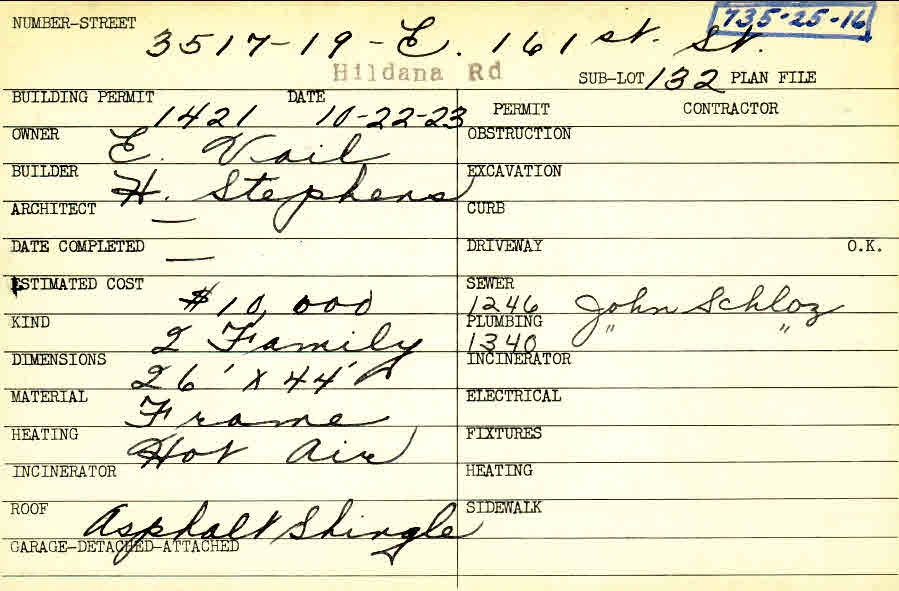 NUMBER-STREET 735-25-16
3517-19-E. 161 st. St.
Hildana Rd
SUB-LOT 132 PLAN FILE
BUILDING PERMIT DATE PERMIT CONTRACTOR
1421 10-22-23
OWNER E. Vail OBSTRUCTION
BUILDER H. Stephens EXCAVATION
ARCHITECT — CURB
DATE COMPLETED — DRIVEWAY O.K.
ESTIMATED COST $10,000 SEWER
1246 John Schloz
KIND 2 Family PLUMBING
1340 " "
DIMENSIONS 26' X 44' INCINERATOR
MATERIAL Frame ELECTRICAL
HEATING Hot Air FIXTURES
INCINERATOR HEATING
ROOF Asphalt Shingle SIDEWALK
GARAGE-DETACHED-ATTACHED